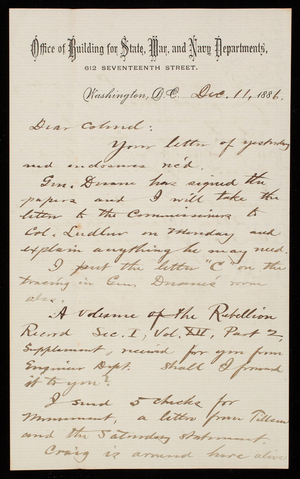 Office of Building for State, War, and Navy Departments,
612 SEVENTEENTH STREET.
Washington, D.C. Dec. 11, 1886.
Dear Colonel:
Your letter of yesterday
and enclosures rec'd.
Gen. Duane has signed the
papers and I will take the
letter to the Commissioners to
Col. Ludlow on Monday and
explain anything he may need.
I put the letter "C" on the
tracing in Gen. Duane's room
also.
A volume of the Rebellion
Record Sec. I, Vol. XII, Part 2,
Supplement, received for you from
Engineer Dept. Shall I forward
it to you?
I send 5 checks for
Monument, a letter from
and the Saturday statement.
Craig is around here